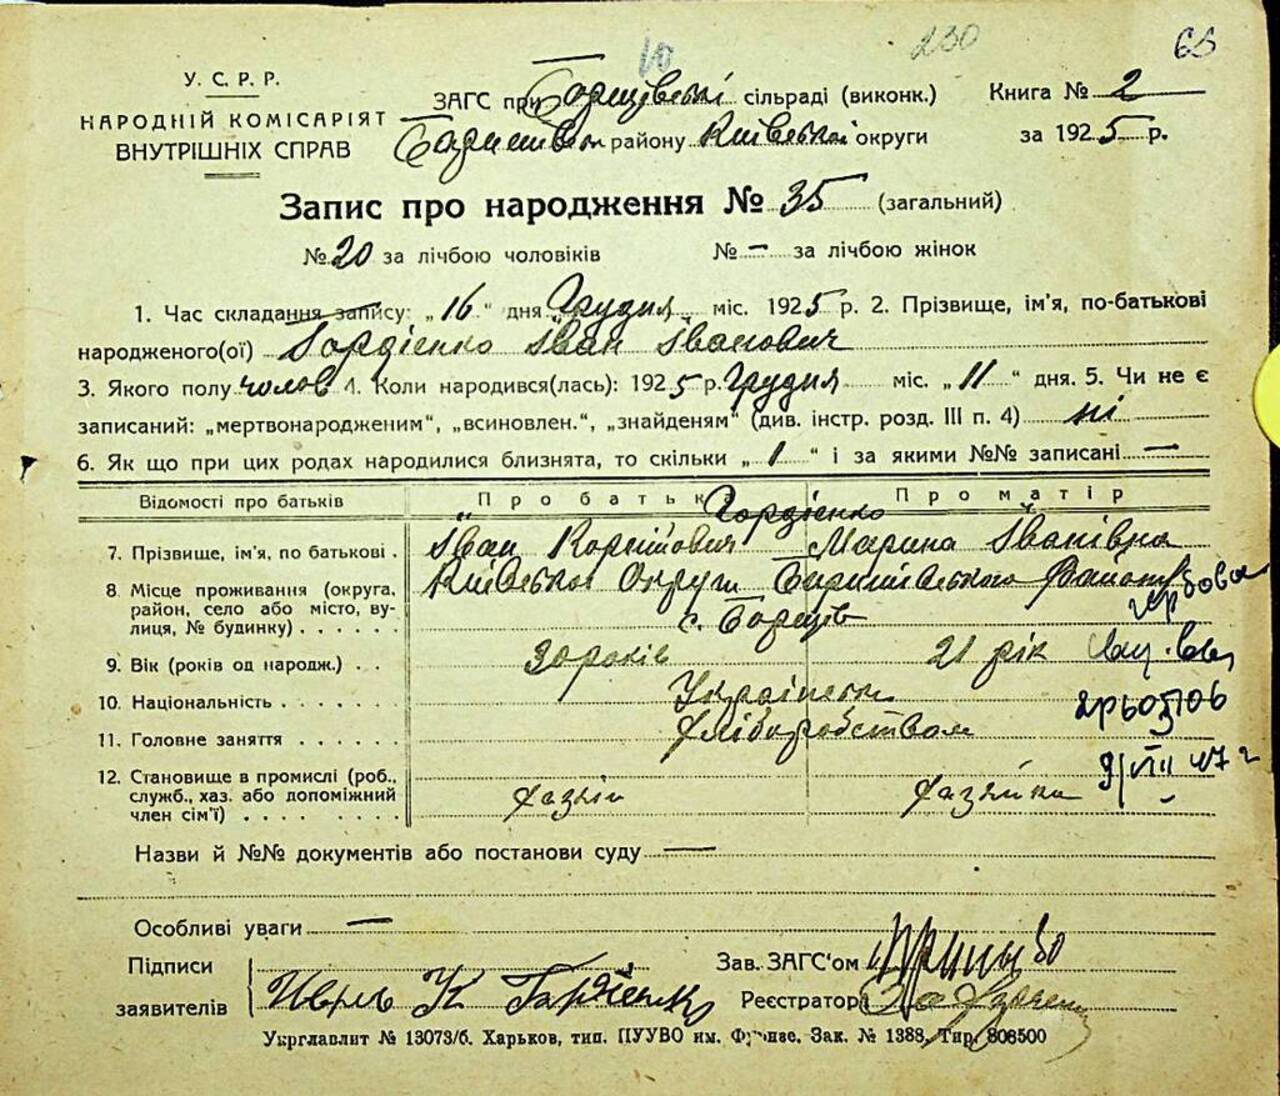 10 230 65
У. С. Р. Р.
НАРОДНІЙ КОМІСАРІЯТ
ВНУТРІШНІХ СПРАВ
ЗАГС при Борщівські сільраді (виконк.)
Баришівськ району Київської округи
Книга № 2
за 1925 р.
Запис про народження № 35 (загальний)
№ 20 за лічбою чоловіків № — за лічбою жінок
1. Час складання запису: „16“ дня Грудня міс. 1925 р. 2. Прізвище, ім'я, по-батькові
народженого(ої) Гордієнко Іван Іванович
3. Якого полу чолов 4. Коли народився(лась): 1925 р. Грудня міс. „11“ дня. 5. Чи не є
записаний: „мертвонародженим“, „всиновлен.“, „знайденям“ (див. інстр. розд. III п. 4) ні
6. Як що при цих родах народилися близнята, то скільки „1“ і за якими №№ записані —
Відомості про батьків Про батька Про матір
Гордієнко
7. Прізвище, ім'я, по батькові . Іван Корнійович Марина Іванівна
8. Місце проживання (округа, Київської Округи Баришівського Району
район, село або місто, ву-
лиця, № будинку) . . . . . . с. Борщів
9. Вік (років од народж.) . . 30 років 21 рік
10. Національність . . . . . . . Українськ
11. Головне заняття . . . . . . Хліборобством
12. Становище в промислі (роб., 9/VIII 47 г
служб., хаз. або допоміжний Хазяїн Хазяйка
член сім'ї) . . . . . . . .
Назви й №№ документів або постанови суду —
Особливі уваги —
Підписи Зав. ЗАГС'ом
заявителів К Реєстратор
Укрглавлит № 13073/б. Харьков, тип. ПУУВО им. Фрунзе. Зак. № 1388. Тир. 808500